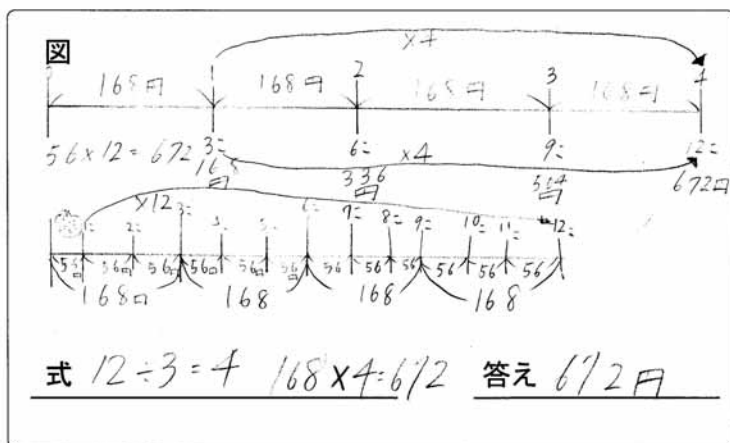 図
×4
1 2 3 4
168円 168円 168円 168円
56×12=672 3こ 6こ ×4 9こ 12こ
168円 336円 504円 672円
×12
1こ 2こ 3こ 3こ 5こ 6こ 7こ 8こ 9こ 10こ 11こ 12こ
56円 56円 56円 56円 56円 56円 56 56 56 56 56 56
168円 168 168 168
式 12÷3=4 168×4=672 答え 672円